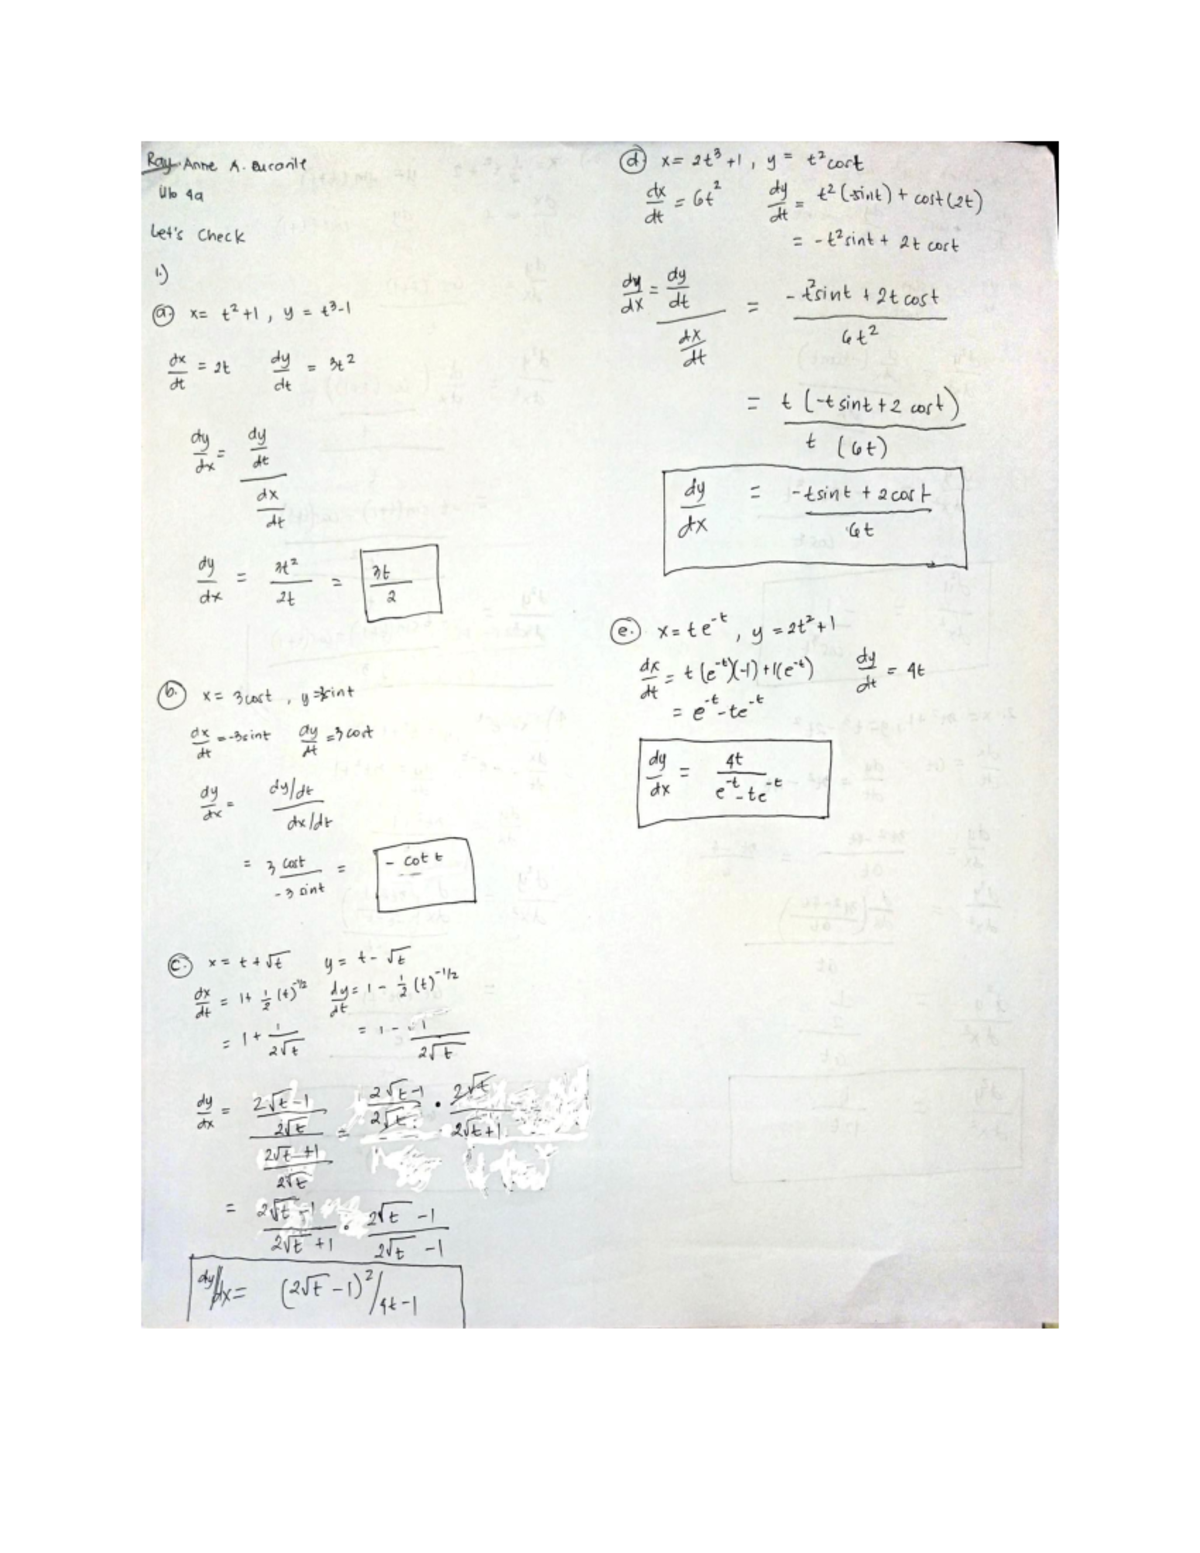 Ray Anne A.
Ulo 4a
Let's Check
1.)
a. x = t²+1, y = t³-1
dx/dt = 2t dy/dt = 3t²
dy/dx = dy/dt / dx/dt
dy/dx = 3t²/2t = 3t/2
b. x = 3cost, y=3sint
dx/dt = -3sint dy/dt = 3cost
dy/dx = dy/dt / dx/dt
= 3cost / -3sint = - cot t
c. x = t+√t y = t-√t
dx/dt = 1+ 1/2 (t)^-1/2 dy/dt = 1 - 1/2 (t)^-1/2
= 1 + 1/2√t = 1 - 1/2√t
dy/dx = 2√t-1/2√t / 2√t+1/2√t = 2√t-1/2√t · 2√t/2√t+1
= 2√t-1/2√t+1 · 2√t-1/2√t-1
dy/dx = (2√t-1)²/4t-1
d. x = 2t³+1, y = t²cost
dx/dt = 6t² dy/dt = t²(-sint)+cost(2t)
= -t²sint+2t cost
dy/dx = dy/dt / dx/dt = -t²sint+2t cost / 6t²
= t(-tsint+2cost) / t(6t)
dy/dx = -tsint+2cost / 6t
e. x = te^-t, y = 2t²+1
dx/dt = t(e^-t)(-1)+1(e^-t) dy/dt = 4t
= e^-t-te^-t
dy/dx = 4t / e^-t-te^-t